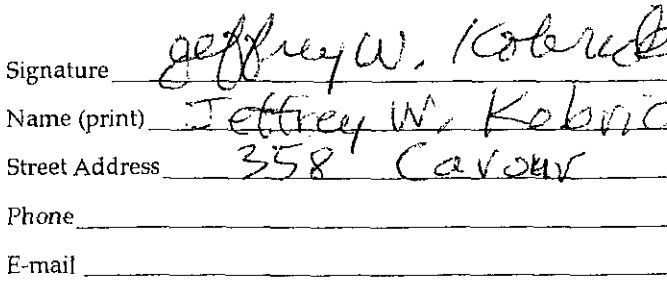 Signature Jeffrey W. Kobrick
Name (print) Jeffrey W. Kobric
Street Address 358 Cavour
Phone
E-mail